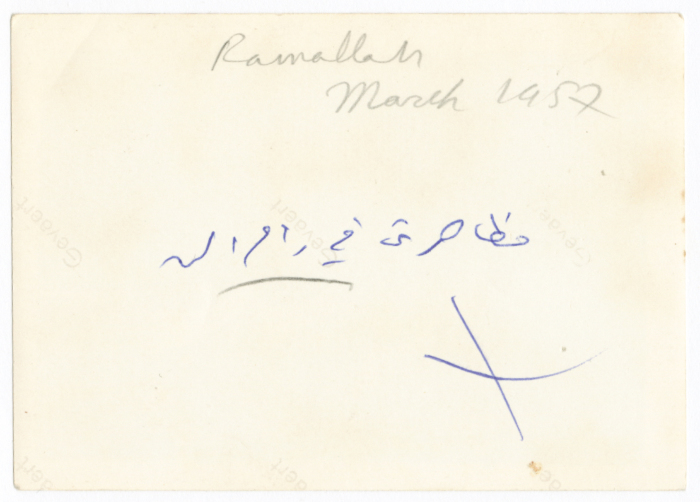 Ramallah
March 1957
مظاهرة في رام الله
Gevaert
Gevaert
Gevaert
Gevaert